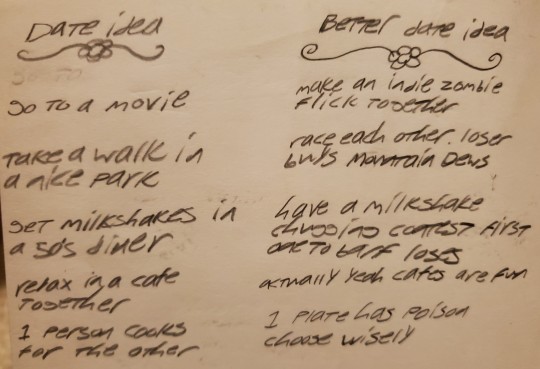 Date idea
go to a movie
take a walk in
a nice park
get milkshakes in
a 50s diner
relax in a cafe
together
1 person cooks
for the other
Better date idea
make an indie zombie
flick together
race each other. loser
buys Mountain Dews
have a milkshake
chugging contest. first
one to barf loses
actually yeah cafes are fun
1 plate has poison
choose wisely